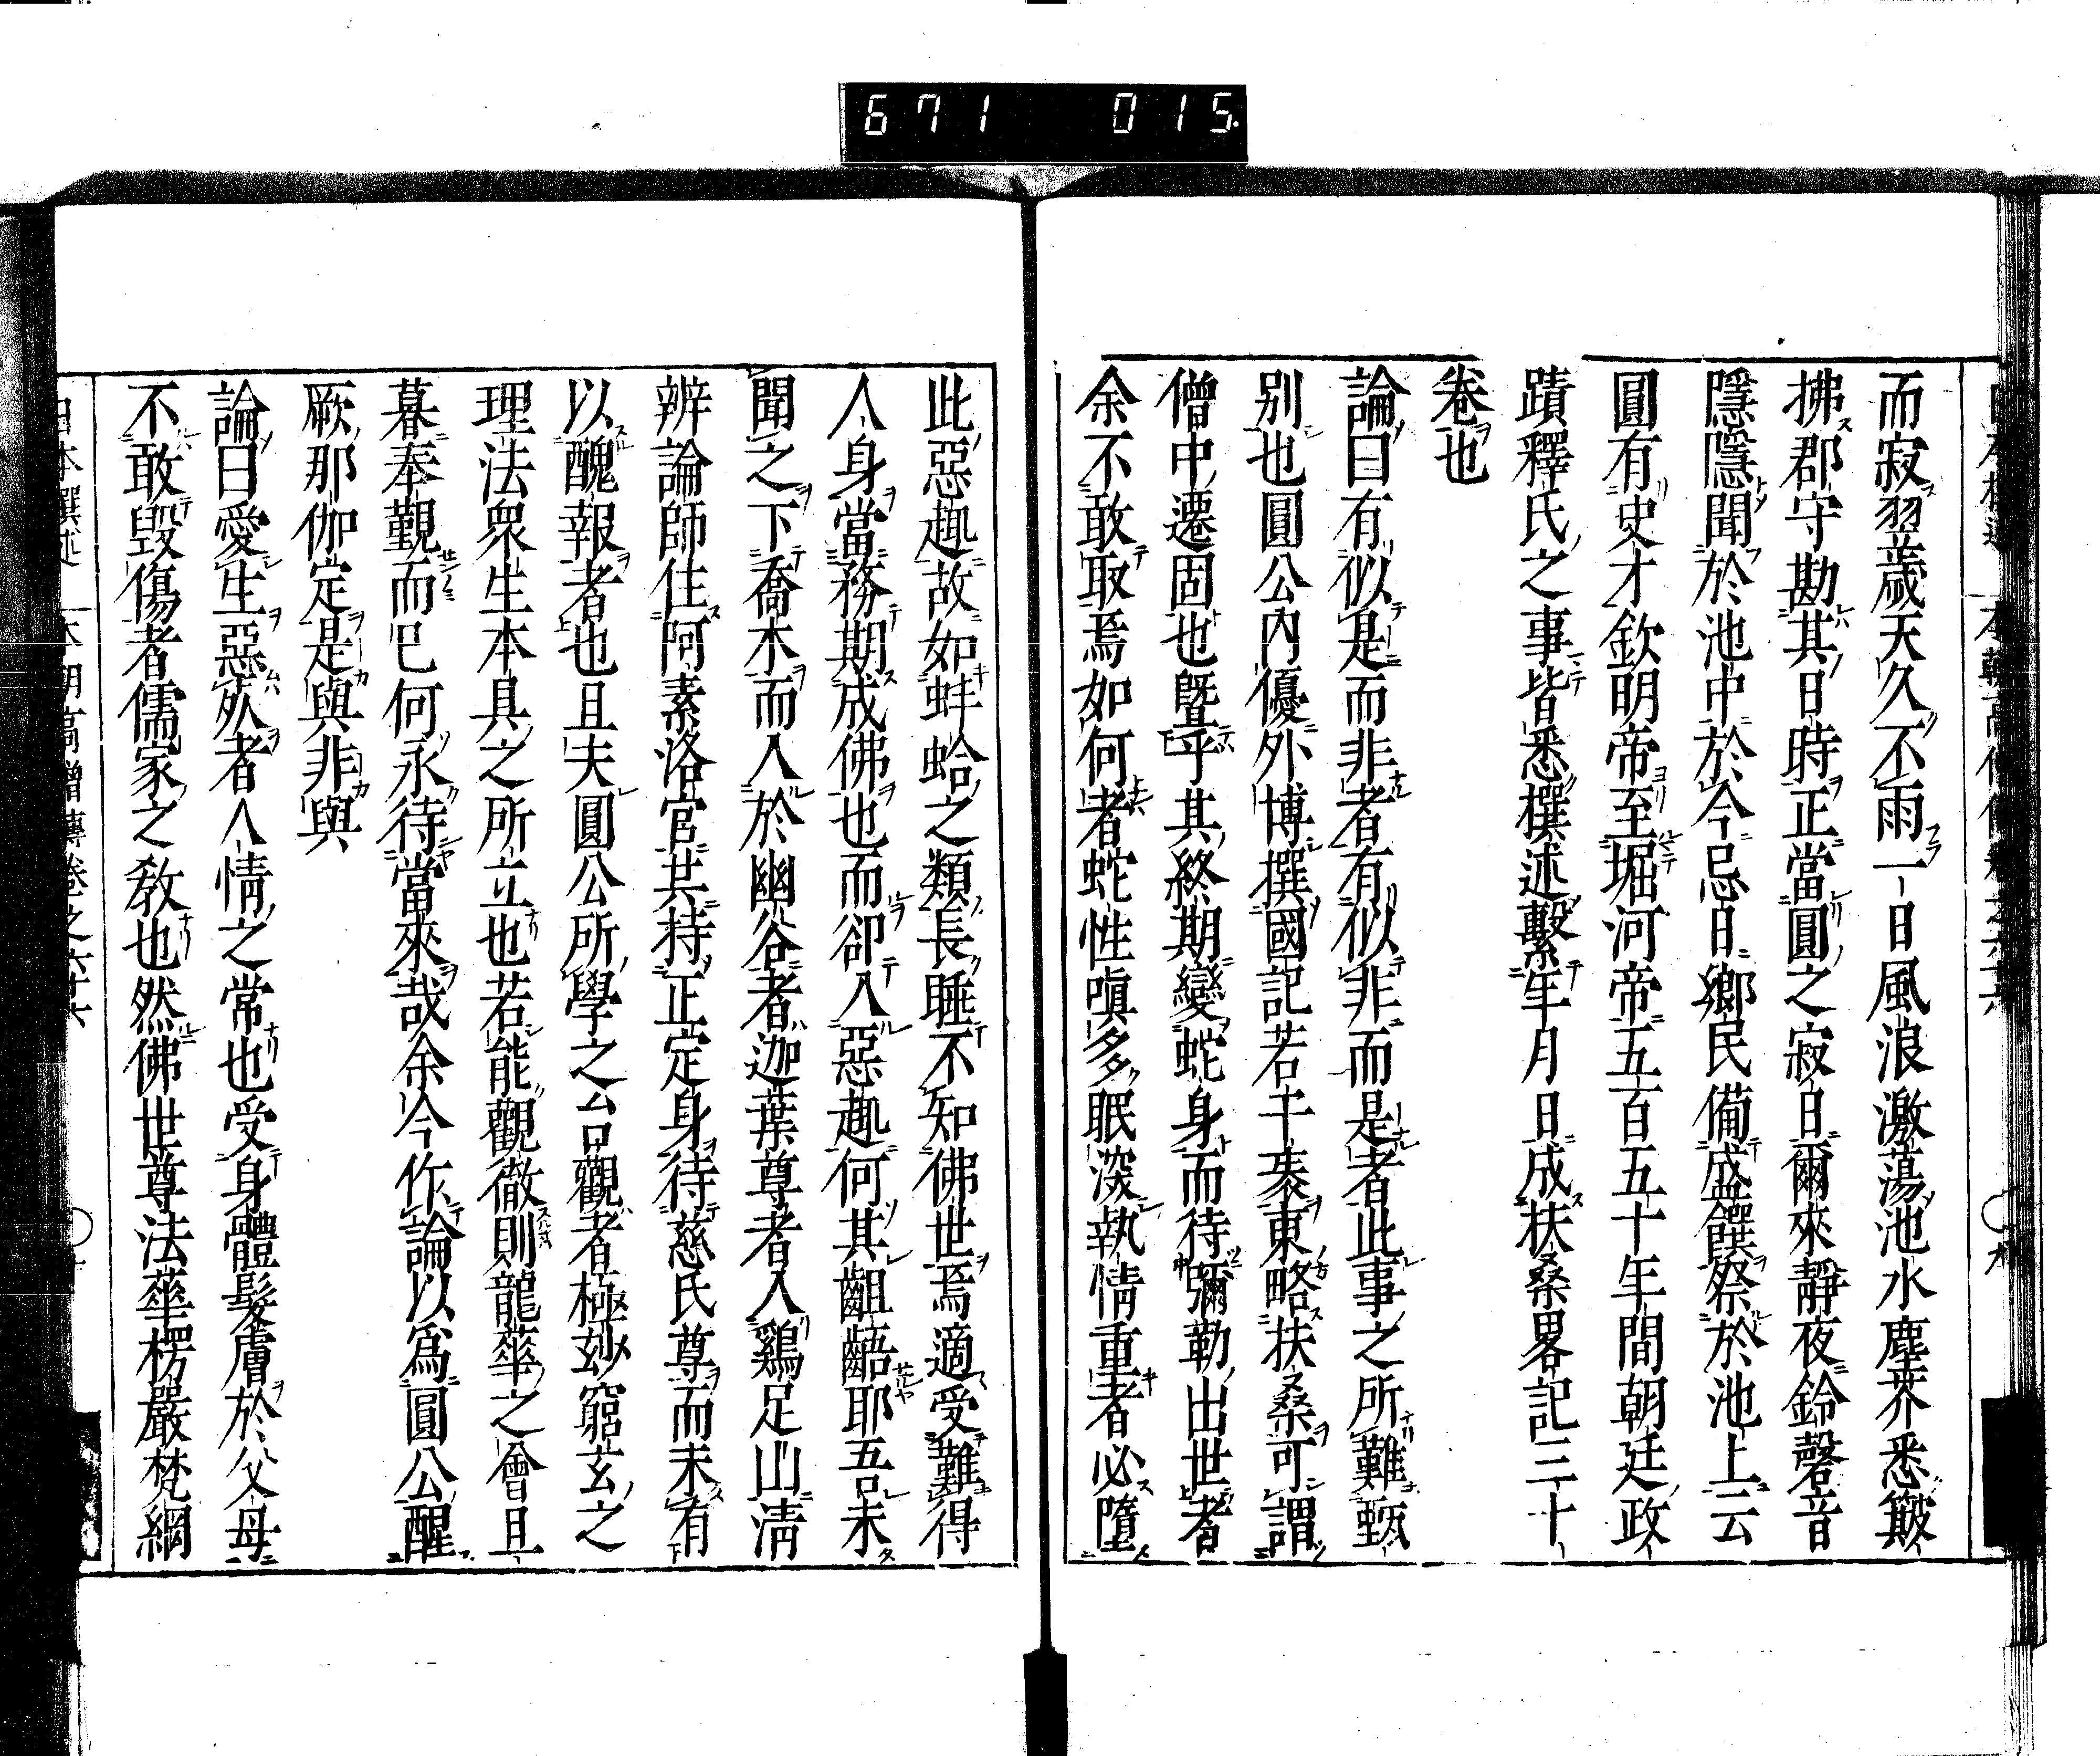 671 015.
而寂翌歲天久不雨一日風浪激蕩池水塵芥悉簸
拂郡守勘其日時正當圓之寂日爾來靜夜鈴磬音
隱隱聞於池中於今忌日鄉民備盛饌祭於池上云
圓有史才欽明帝至堀河帝五百五十年間朝廷政
蹟釋氏之事皆悉撰述繫年月日成扶桑畧記三十
卷也
論曰有似是而非者有似非而是者此事之所難甄
別也圓公內優外博撰國記若干袠東略扶桑可謂
僧中遷固也曁乎其終期變蛇身而待彌勒出世者
余不敢取焉如何者蛇性嗔多眠深執情重者必墮
此惡趣故如蚌蛤之類長睡不知佛世焉適受難得
人身當務期成佛也而卻入惡趣何其齟齬耶吾未
聞之下喬木而入於幽谷者迦葉尊者入鷄足山清
辨論師住阿素洛宮共持正定身待慈氏尊而未有
以醜報者也且夫圓公所學之台觀者極玅窮玄之
理法衆生本具之所立也若能觀徹則龍華之會旦
暮奉覲而已何永待當來哉余今作論以爲圓公醒
厥那伽定是與非與
論曰愛生惡死者人情之常也受身體髮膚於父母
不敢毀傷者儒家之敎也然佛世尊法華楞嚴梵網
日本撰述 本朝高僧傳卷之六十六